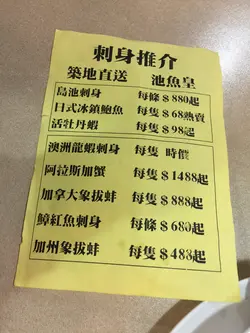 刺身推介
築地直送 池魚皇
島池刺身 每條＄880起
日式冰鎮鮑魚 每隻＄68熱賣
活牡丹蝦 每隻＄98起
澳洲龍蝦刺身 每隻 時價
阿拉斯加蟹 每隻＄1488起
加拿大象拔蚌 每隻＄888起
鱆紅魚刺身 每條＄680起
加州象拔蚌 每隻＄488起